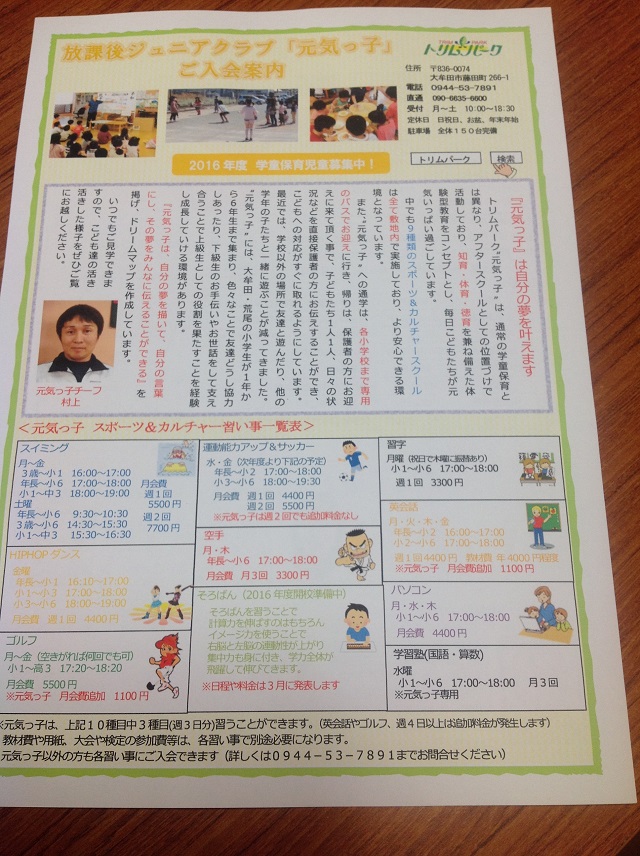 放課後ジュニアクラブ「元気っ子」
ご入会案内
TRIM PARK
トリムパーク
住所 〒836-0074
大牟田市藤田町266-1
電話 0944-53-7891
直通 090-6635-6600
受付 月~土 10:00~18:30
定休日 日祝日、お盆、年末年始
駐車場 全体150台完備
2016年度 学童保育児童募集中!
トリムパーク 検索
『元気っ子』は自分の夢を叶えます
トリムパーク“元気っ子”は、通常の学童保育と
は異なり、アフタースクールとしての位置づけで
活動しており、知育・体育・徳育を兼ね備えた体
験型教育をコンセプトとし、毎日こどもたちが元
気いっぱい過ごしています。
中でも9種類のスポーツ&カルチャースクール
は全て敷地内で実施しており、より安心できる環
境となっています。
また、“元気っ子”への通学は、各小学校まで専用
のバスでお迎えに行き、帰りは、保護者の方にお迎
えに来て頂く事で、子どもたち1人1人、日々の状
況などを直接保護者の方にお伝えすることができ、
こどもへの対応がすぐに取れるようにしています。
最近では、学校以外の場所で友達と遊んだり、他の
学年の子たちと一緒に遊ぶことが減ってきました。
“元気っ子”には、大牟田・荒尾の小学生が1年か
ら6年生まで集まり、色々なことで友達どうし協力
しあったり、下級生のお手伝いやお世話をして支え
合うことで上級生としての役割を果たすことを経験
し成長していける環境があります。
『元気っ子は、自分の夢を描いて、自分の言葉
にし、その夢をみんなに伝えることができる』を
掲げ、ドリームマップを作成しています。
いつでもご見学できま
すので、こども達の活き
活きした様子をぜひご覧
にお越しください。
元気っ子チーフ
村上
<元気っ子 スポーツ&カルチャー習い事一覧表>
スイミング
月~金
3歳~小1 16:00~17:00
年長~小6 17:00~18:00
小1~中3 18:00~19:00
土曜
年長~小6 9:30~10:30
3歳~小6 14:30~15:30
小1~中3 15:30~16:30
月会費
週1回
5500円
週2回
7700円
HIPHOPダンス
金曜
年長~小1 16:10~17:00
小1~小3 17:00~18:00
小3~小6 18:00~19:00
月会費 週1回 4400円
ゴルフ
月~金(空きがれば何回でも可)
小1~高3 17:20~18:20
月会費 5500円
※元気っ子 月会費追加 1100円
運動能力アップ&サッカー
水・金(次年度より下記の予定)
年長~小2 17:00~18:00
小3~小6 18:00~19:30
月会費 週1回 4400円
週2回 5500円
※元気っ子は週2回でも追加料金なし
空手
月・木
年長~小6 17:00~18:00
月会費 月3回 3300円
そろばん(2016年度開校準備中)
そろばんを習うことで
計算力を伸ばすのはもちろん
イメージ力を使うことで
右脳と左脳の運動性が上がり
集中力も身に付き、学力全体が
飛躍して伸びてきます。
※日程や料金は3月に発表します
習字
月曜(祝日で木曜に振替あり)
小1~小6 17:00~18:00
週1回 3300円
英会話
月・火・木・金
年長~小2 16:00~17:00
小2~小6 17:00~18:00
週1回4400円 教材費 年4000円程度
※元気っ子 月会費追加 1100円
パソコン
月・水・木
小1~小6 17:00~18:00
月会費 4400円
学習塾(国語・算数)
水曜
小1~小6 17:00~18:00 月3回
※元気っ子専用
※元気っ子は、上記10種目中3種目(週3日分)習うことができます。(英会話やゴルフ、週4日以上は追加料金が発生します)
教材費や用紙、大会や検定の参加費等は、各習い事で別途必要になります。
元気っ子以外の方も各習い事にご入会できます(詳しくは0944-53-7891までお問合せください)